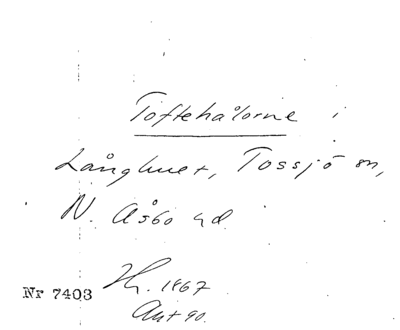 Toftehålorne i
Långhult, Tossjö sn,
N. Åsbo hd.
Nr 7403
1867
Ant 90.